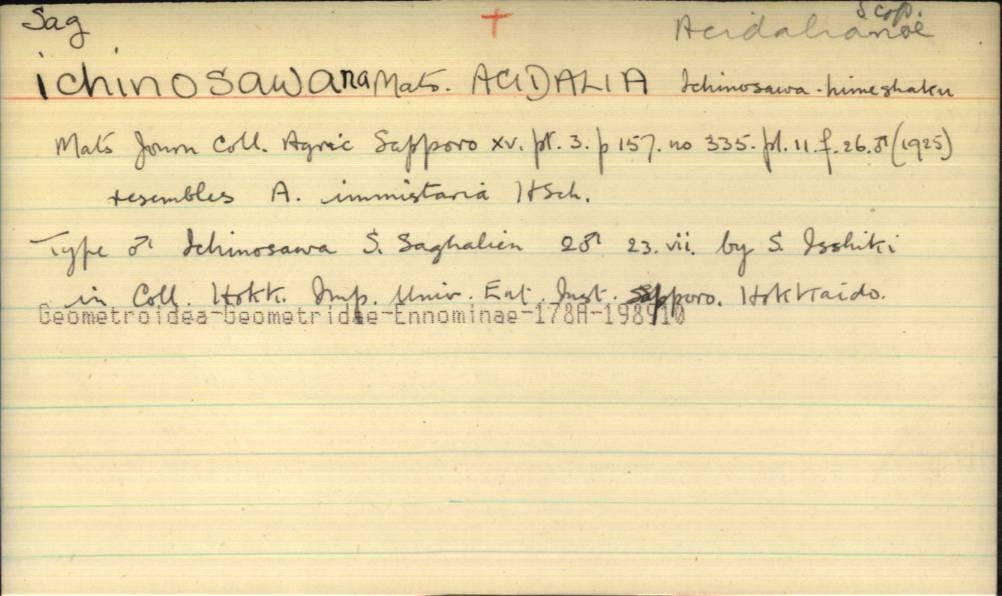 Sag + Scop.
Acidalianae
ichinosawana Mats. ACIDALIA Ichinosawa-himeshaku
Mats Journ Coll. Agric Sapporo XV. pt. 3. p 157. no 335. pl. 11. f. 26. ♂ (1925)
resembles A. immistaria HSch.
Type ♂ Ichinosawa S. Saghalien 2♂ 23. vii. by S. Isshiki
in Coll. Hokk. Imp. Univ. Ent. Inst. Sapporo. Hokkaido.
Geometroidea-Geometridae-Ennominae-178A-198910